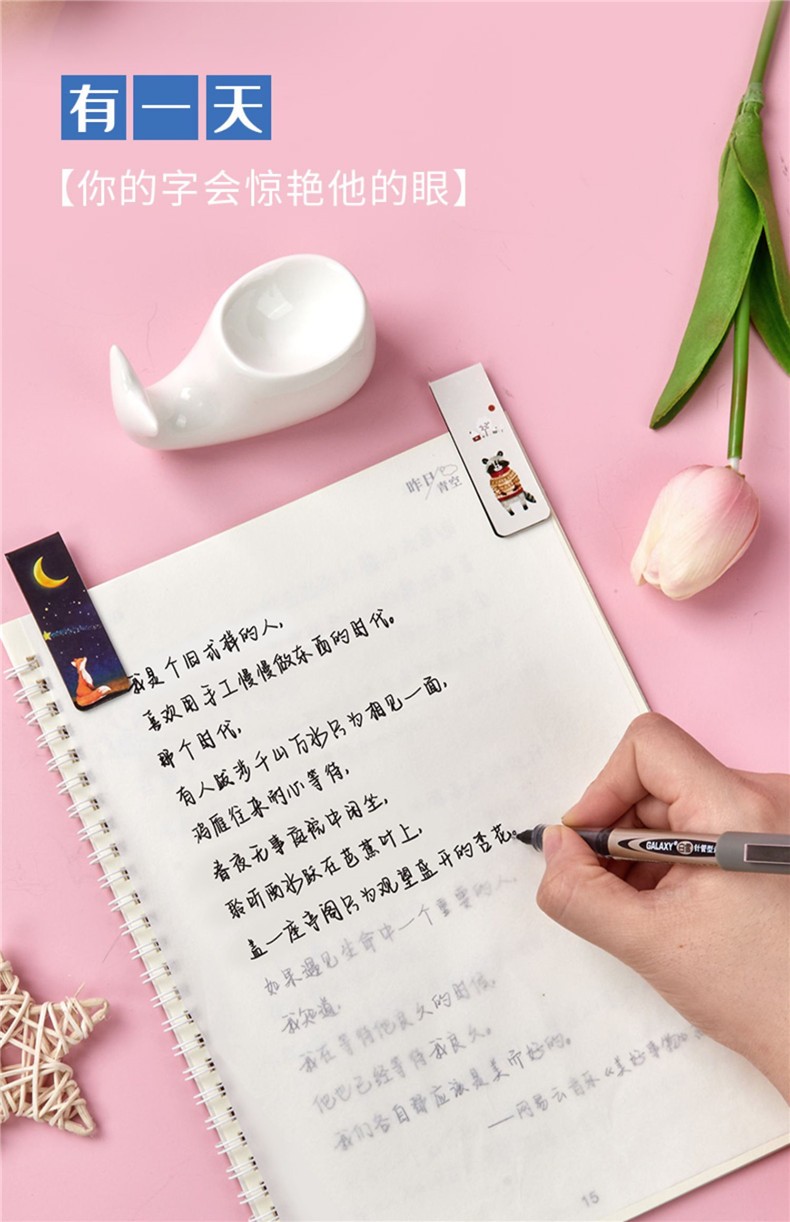 有一天
【你的字会惊艳他的眼】
昨日
青空
我是个旧式样的人,
喜欢用手工慢慢做东西的时代。
那个时代,
有人跋涉千山万水只为相见一面,
鸿雁往来耐心等待,
春夜无事庭院中闲坐,
聆听雨水跃在芭蕉叶上,
盖一座亭阁只为观望盛开的杏花。
如果遇见生命中一个重要的人,
我知道,
我在等待他良久的时候,
他也已经等待我良久。
我们各自都应该是美而好的。
——网易云音乐《美好事物》
GALAXY 针管型
15